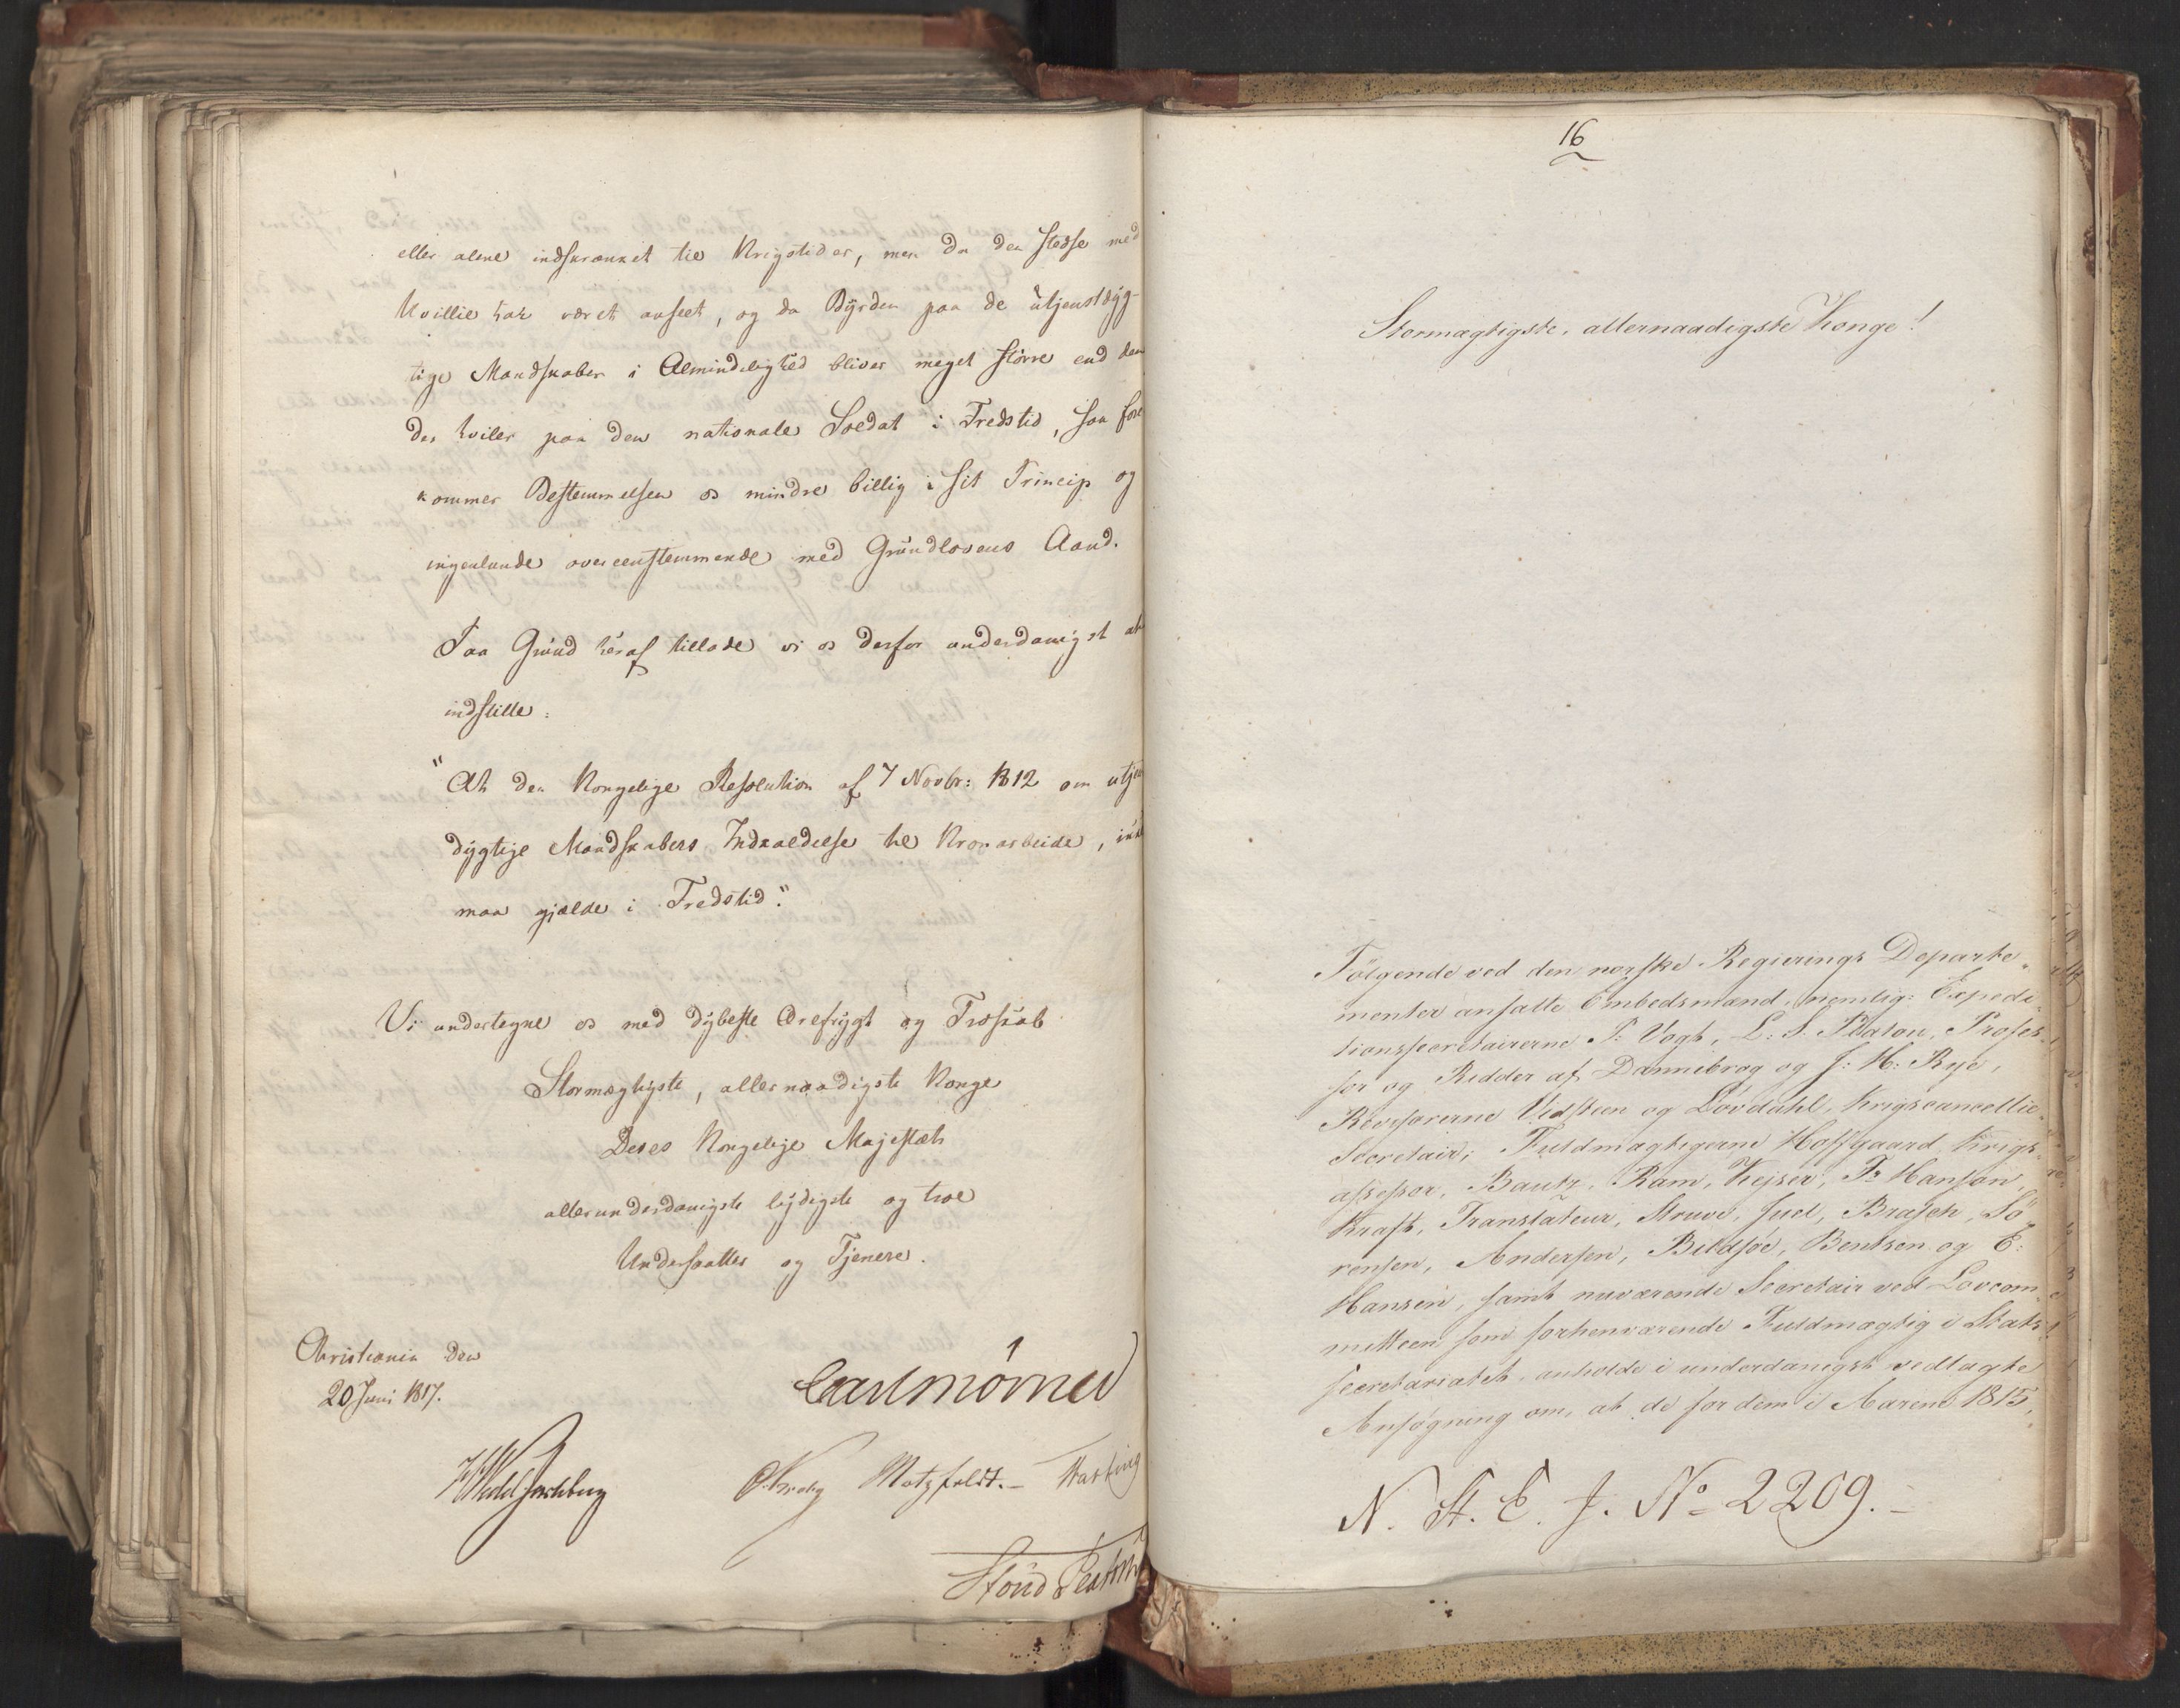 eller alene indskrænket til Krigstider, men da den stedse med
Uvillie har været anseet, og da Byrden paa de utjenstdyg-
tige Mandskaber i Almindelighed bliver meget större end den
der hviler paa den nationale Soldat i Fredstid, saa fore
kommer Bestemmelsen os mindre billig i sit Princip og
ingenlunde overeenstemmende med Grundlovens Aand.
Paa Grund heraf tillade vi os derfor underdanigst at
indstille:
"At den Kongelige Resolution af 7 Novbr: 1812 om utjen
dygtige Mandskabers Indkaldelse til Kronarbeide, ikke
maa gjælde i Fredstid."
Vi undertegne os med dybeste Ærefrygt og Troskab
Stormægtigste, allernaadigste Konge
Deres Kongelige Majestæts
allerunderdanigste lydigste og troe
Undersaatter og Tjenere.
Christiania den
20 Juni 1817.
Carl Mörner
HWedel Jarlsberg
Krohg Motzfeldt.- Hasting
16
Stormægtigste, allernaadigste Konge!
Fölgende ved den norske Regierings Departe-
menter ansatte Embedsmænd, nemlig: Expedi-
tionssecretairerne P: Vogt, L: S. Platou, Profes-
sor og Ridder af Dannebrog og J: H: Rye,
Revisorerne Vidsteen og Lövdahl, Krigscancellie-
Secretair; Fuldmægtigerne Hoffgaard, Krigs-
assessor, Bautz, Ram, Kejser, F: Hanson,
Kraft, Translateur, Struve, Juel, Brasch, Sö
rensen, Andersen, Bildsöe, Bentsen og E:
Hansen, samt nuværende Secretair ved Lovcom-
mitteen som forhenværende Fuldmægtig i Stats-
secretariatet, anholde i underdanigst vedlagte
Ansögning om, at de for dem i Aarene 1815,
N. St. E. J. No 2209.-